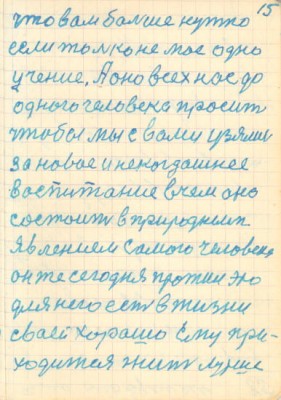 15
что вам больше нужно
если только не мое одно
учение. А оно всех нас до
одного человека просит
чтобы мы с вами узялись
за новое и некогдашнее
воспитание в чем оно
состоит в природным
явлением самого человека
он же сегодня против это
для него есть в жизни
своей хорошо Ему при-
ходится жить лучше